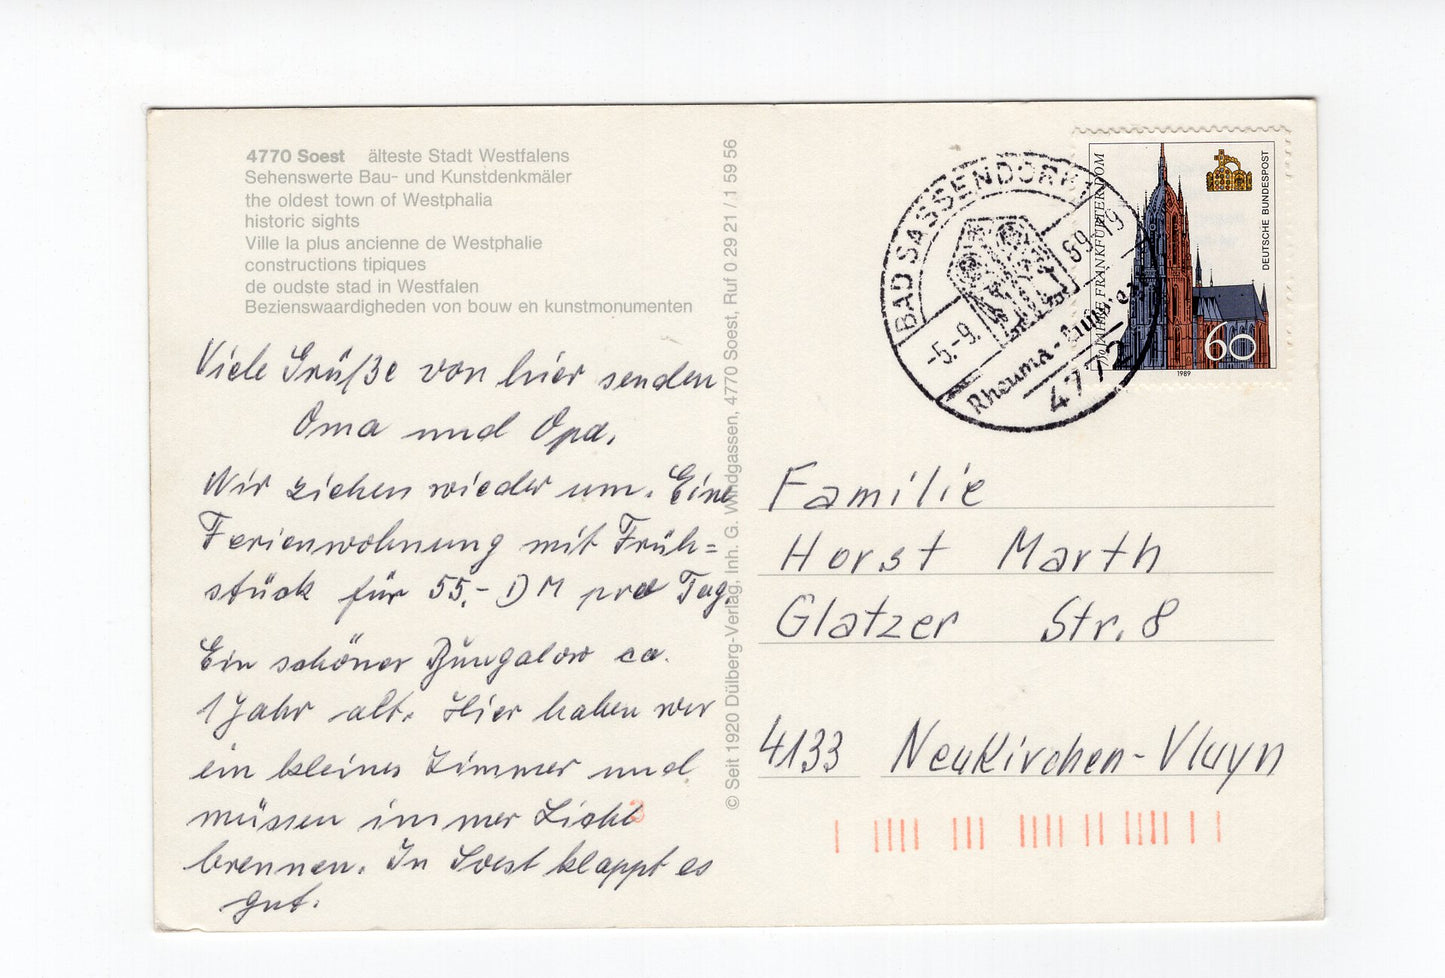 4770 Soest älteste Stadt Westfalens
Sehenswerte Bau- und Kunstdenkmäler
the oldest town of Westphalia
historic sights
Ville la plus ancienne de Westphalie
constructions tipiques
de oudste stad in Westfalen
Bezienswaardigheden von bouw eh kunstmonumenten
Viele Grüße von hier senden
Oma und Opa.
Wir ziehen wieder um. Eine
Ferienwohnung mit Früh=
stück für 55,- DM pro Tag.
Ein schöner Bungalow ca.
1 Jahr alt. Hier haben wir
ein kleines Zimmer und
müssen immer Licht
brennen. In Soest klappt es
gut.
© Seit 1920 Dülberg-Verlag, Inh. G. Windgassen, 4770 Soest, Ruf 0 29 21 / 1 59 56
BAD SASSENDORF
-5.-9. 89-19
Rheuma-
4772
FRANKFURTER DOM
DEUTSCHE BUNDESPOST
60
1989
Familie
Horst Marth
Glatzer Str. 8
4133 Neukirchen-Vluyn
2